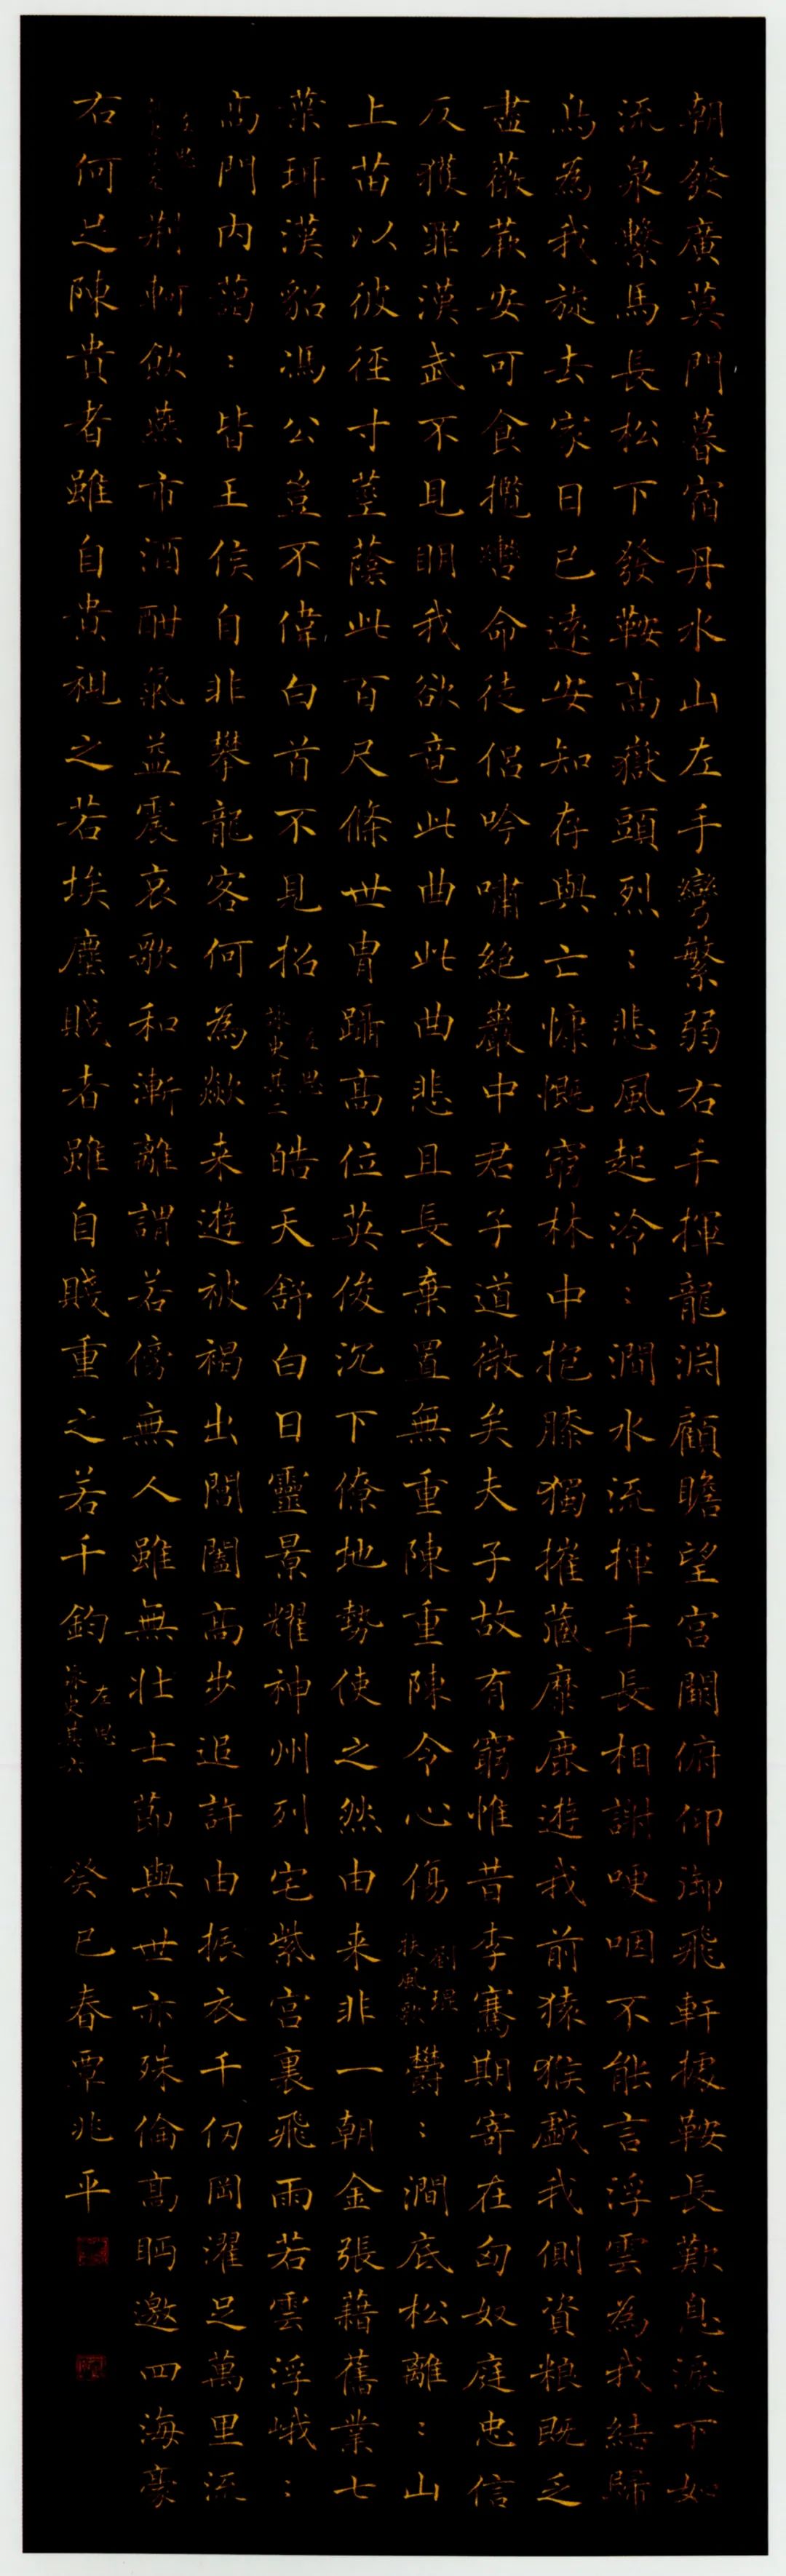 朝發廣莫門暮宿丹水山左手彎繁弱右手揮龍淵顧瞻望宮闕俯仰御飛軒據鞍長歎息淚下如
流泉繫馬長松下發鞍高嶽頭烈：悲風起泠：澗水流揮手長相謝哽咽不能言浮雲為我結歸
鳥為我旋去家日已遠安知存與亡慷慨窮林中抱膝獨摧藏麋鹿遊我前猿猴戲我側資粮既乏
盡薇蕨安可食攬轡命徒侶吟嘯絕巖中君子道微矣夫子故有窮惟昔李騫期寄在匈奴庭忠信
反獲罪漢武不見明我欲竟此曲此曲悲且長棄置無重陳重陳令心傷劉琨扶風歌鬱：澗底松離：山
上苗以彼徑寸莖蔭此百尺條世冑躡高位英俊沉下僚地勢使之然由来非一朝金張藉舊業七
葉珥漢貂馮公豈不偉白首不見招左思詠史其二皓天舒白日靈景耀神州列宅紫宮裏飛雨若雲浮峨：
高門內藹：皆王侯自非攀龍客何為歘来遊被褐出閶闔高步追許由振衣千仞岡濯足萬里流
左思荆軻飲燕市酒酣氣益震哀歌和漸離謂若傍無人雖無壯士節與世亦殊倫高眄邈四海豪
右何足陳貴者雖自貴視之若埃塵賤者雖自賤重之若千鈞左思詠史其六 癸巳春覃兆平